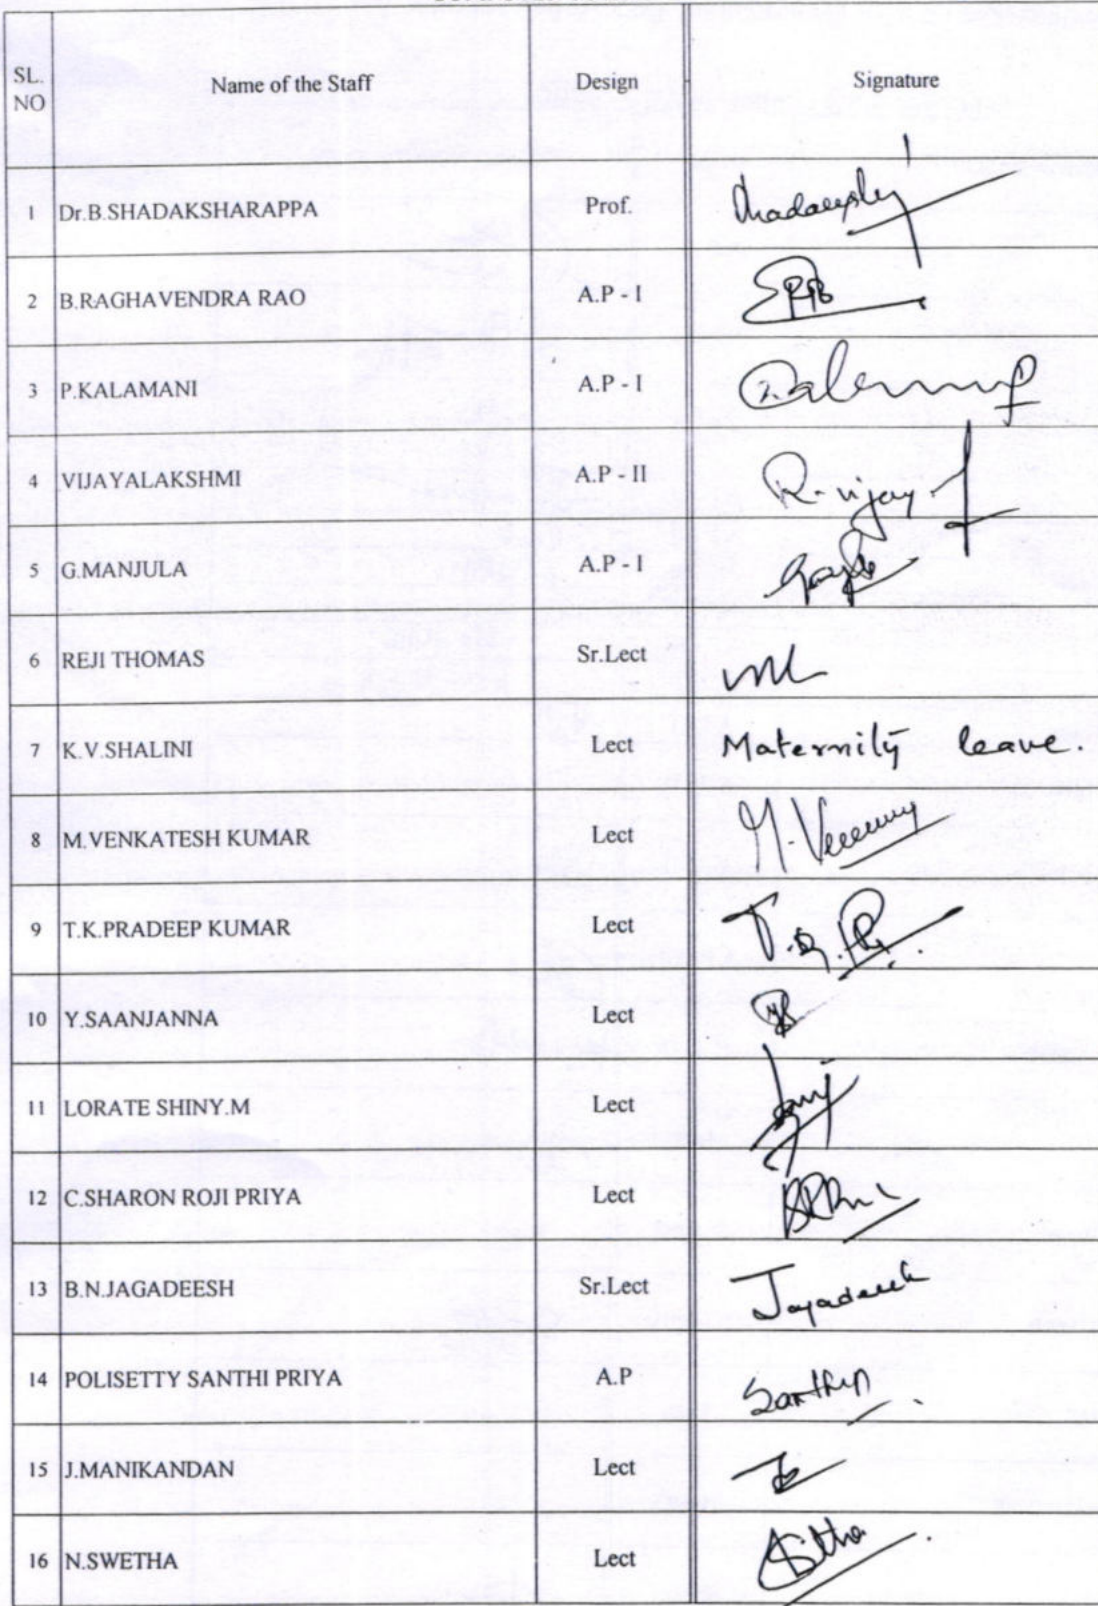 SL. NO Name of the Staff Design Signature
1 Dr.B.SHADAKSHARAPPA Prof.
2 B.RAGHAVENDRA RAO A.P - I
3 P.KALAMANI A.P - I
4 VIJAYALAKSHMI A.P - II R. Vijay
5 G.MANJULA A.P - I
6 REJI THOMAS Sr.Lect
7 K.V.SHALINI Lect Maternity leave.
8 M.VENKATESH KUMAR Lect
9 T.K.PRADEEP KUMAR Lect
10 Y.SAANJANNA Lect
11 LORATE SHINY.M Lect
12 C.SHARON ROJI PRIYA Lect
13 B.N.JAGADEESH Sr.Lect Jagadeesh
14 POLISETTY SANTHI PRIYA A.P
15 J.MANIKANDAN Lect
16 N.SWETHA Lect